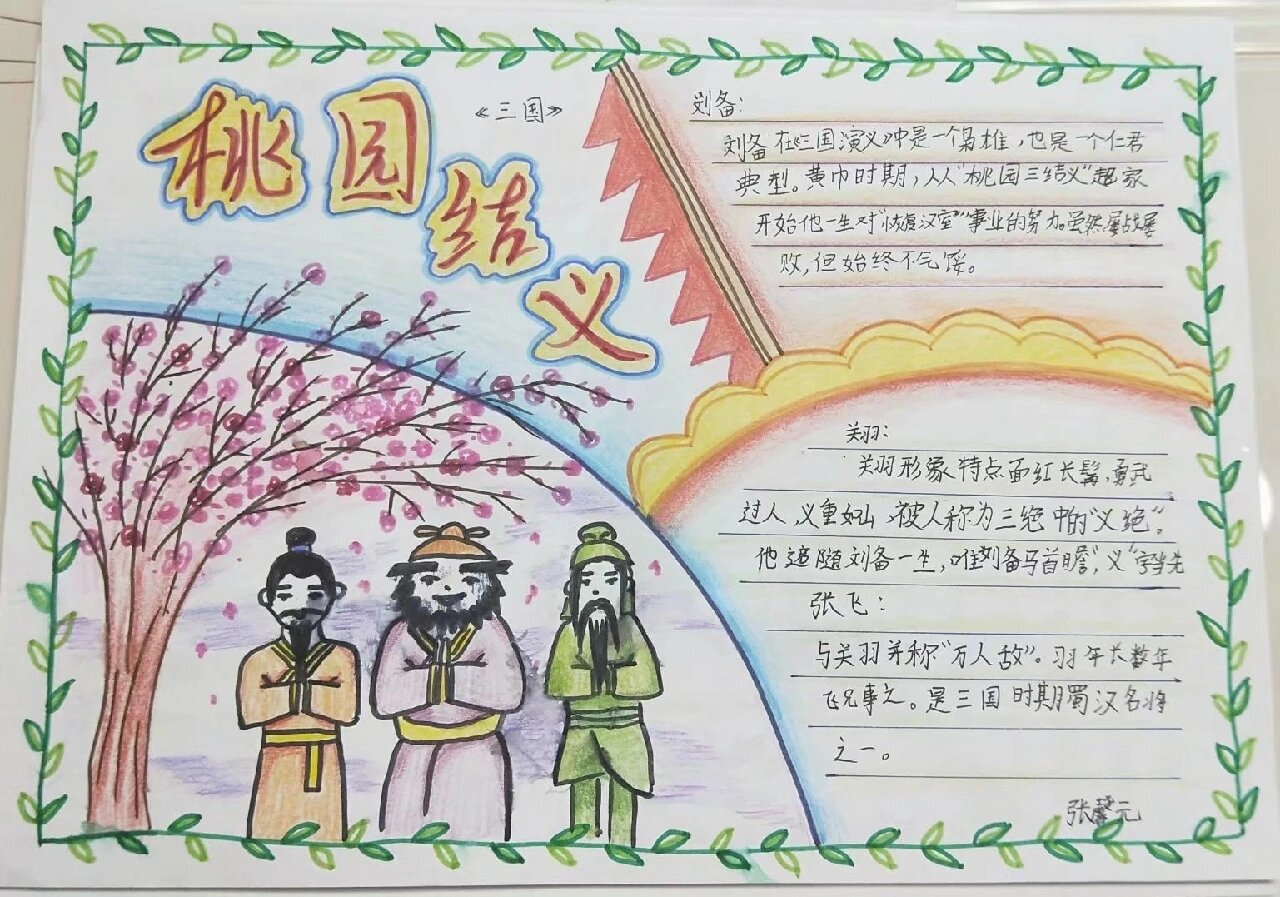 桃园结义
《三国》
刘备:
刘备在《三国演义》中是一个枭雄,也是一个仁君
典型。黄巾时期,从"桃园三结义"起家
开始他一生对"恢复汉室"事业的努力。虽然屡战屡
败,但始终不气馁。
关羽:
关羽形象特点面红长髯,勇武
过人,义重如山,被人称为三绝中的"义绝"。
他追随刘备一生,唯刘备马首瞻,"义"字当先
张飞:
与关羽并称"万人敌"。羽年长数年
飞兄事之。是三国时期蜀汉名将
之一。
张馨元